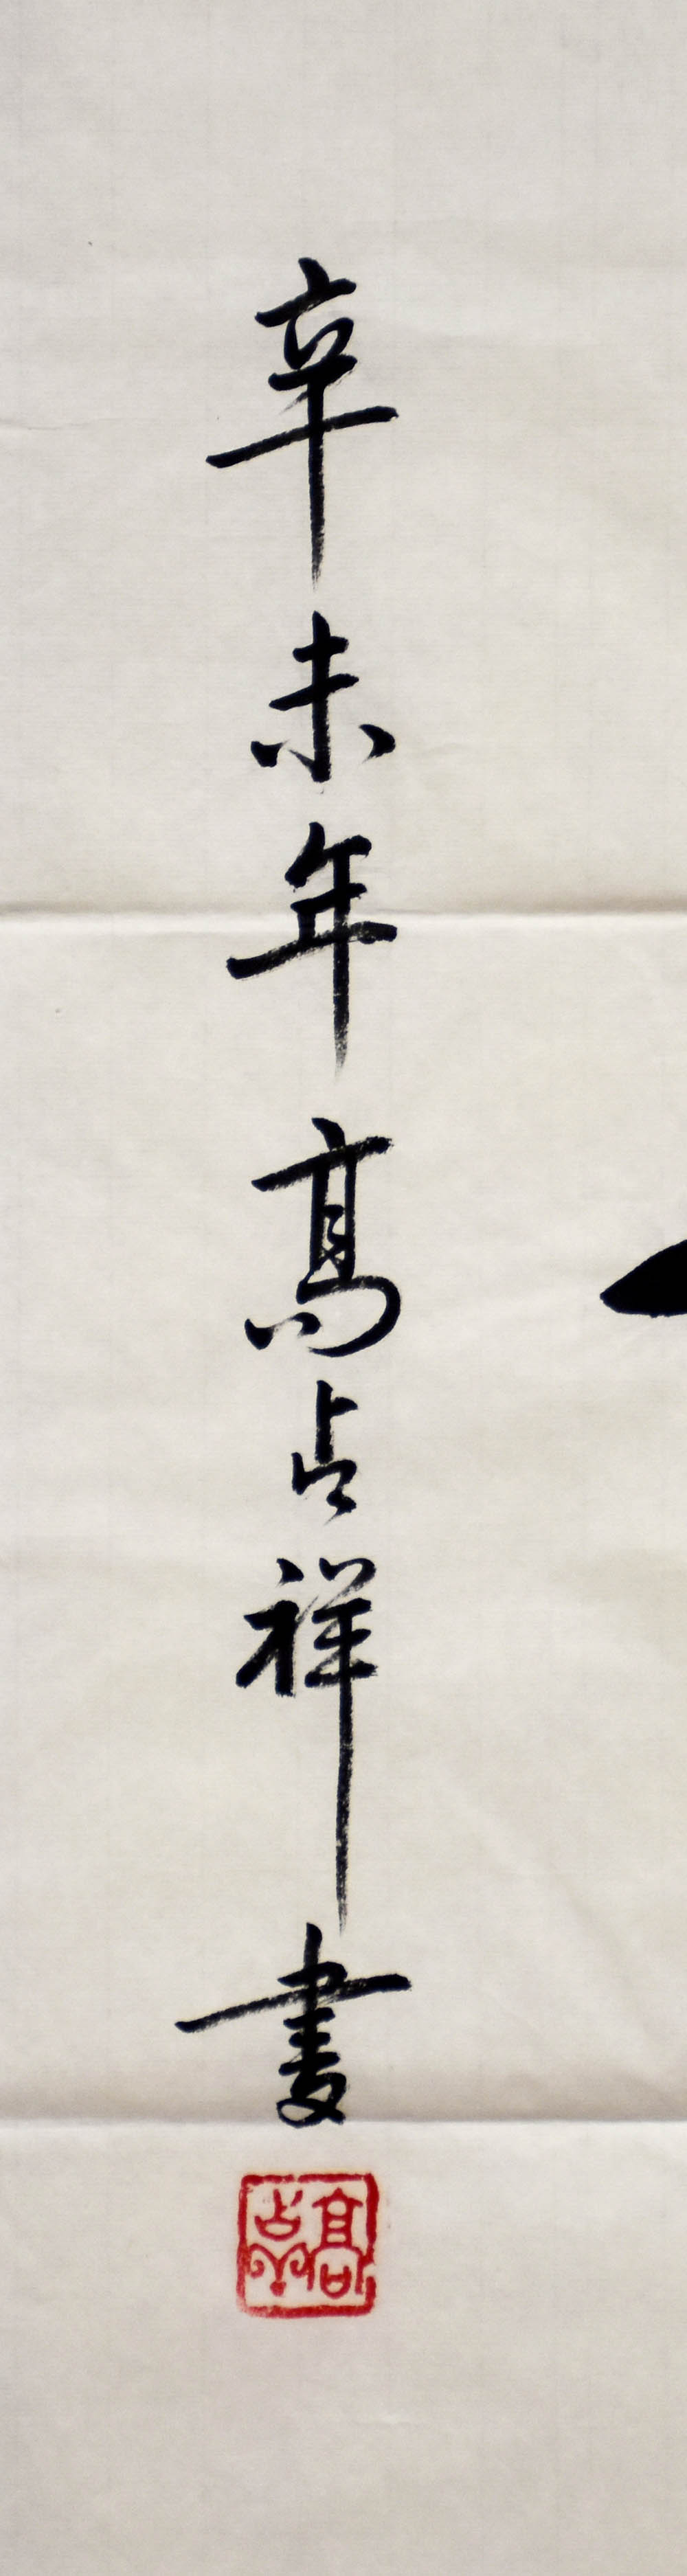 辛未年高占祥書
高占祥